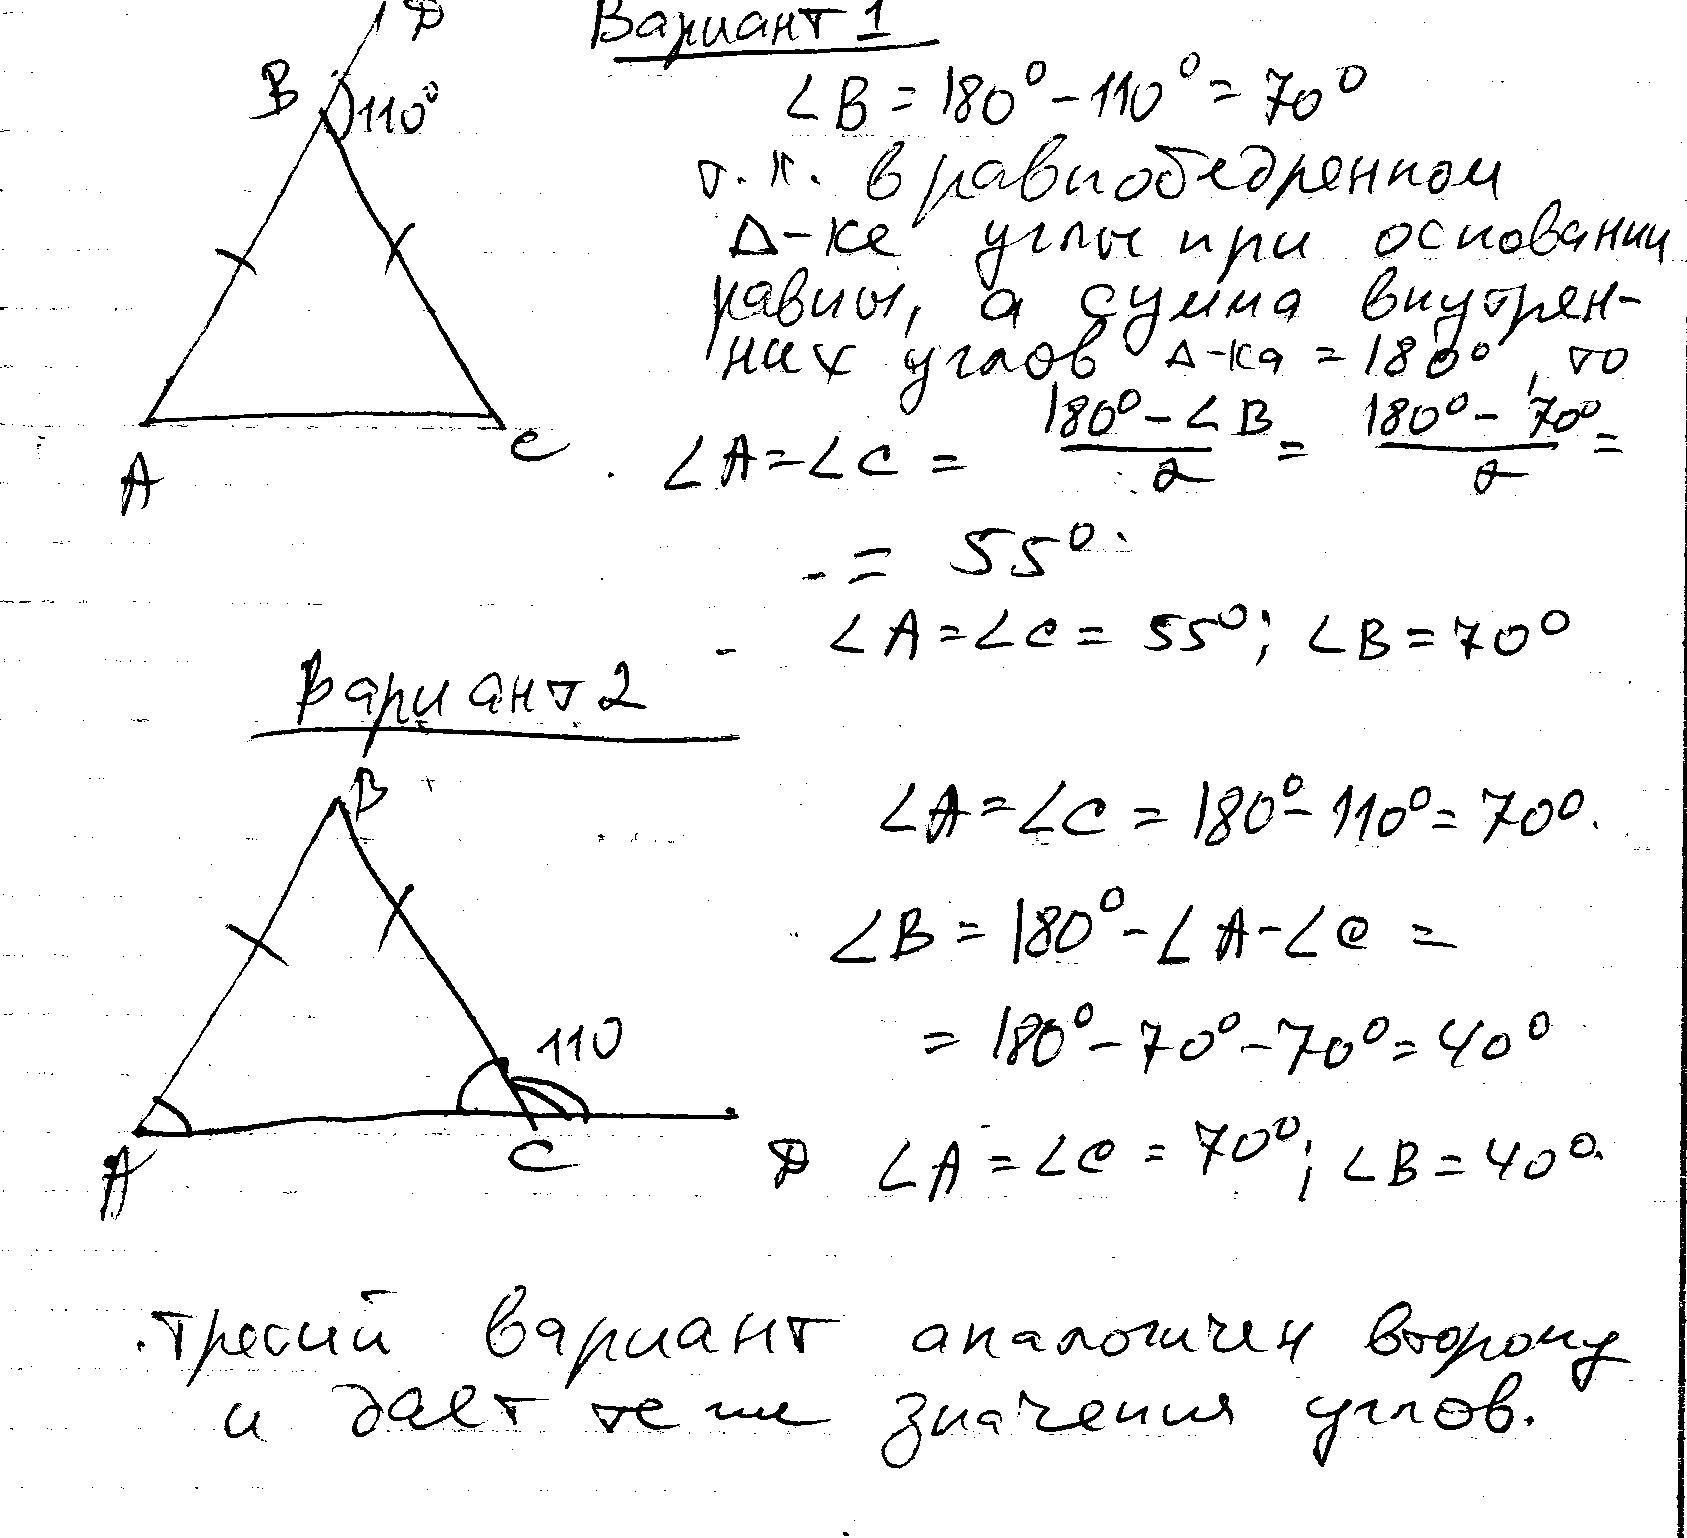 D
Вариант 1
B
110°
∠B = 180° - 110° = 70°
т.к. в равнобедренном
Δ-ке углы при основании
равны, а сумма внутрен-
них углов Δ-ка = 180°, то
A
C
∠A = ∠C = (180° - ∠B)/2 = (180° - 70°)/2 =
= 55°.
∠A = ∠C = 55°; ∠B = 70°
Вариант 2
B
∠A = ∠C = 180° - 110° = 70°.
∠B = 180° - ∠A - ∠C =
110
= 180° - 70° - 70° = 40°
A
C
D
∠A = ∠C = 70°; ∠B = 40°.
Третий вариант аналогичен второму
и даёт те же значения углов.